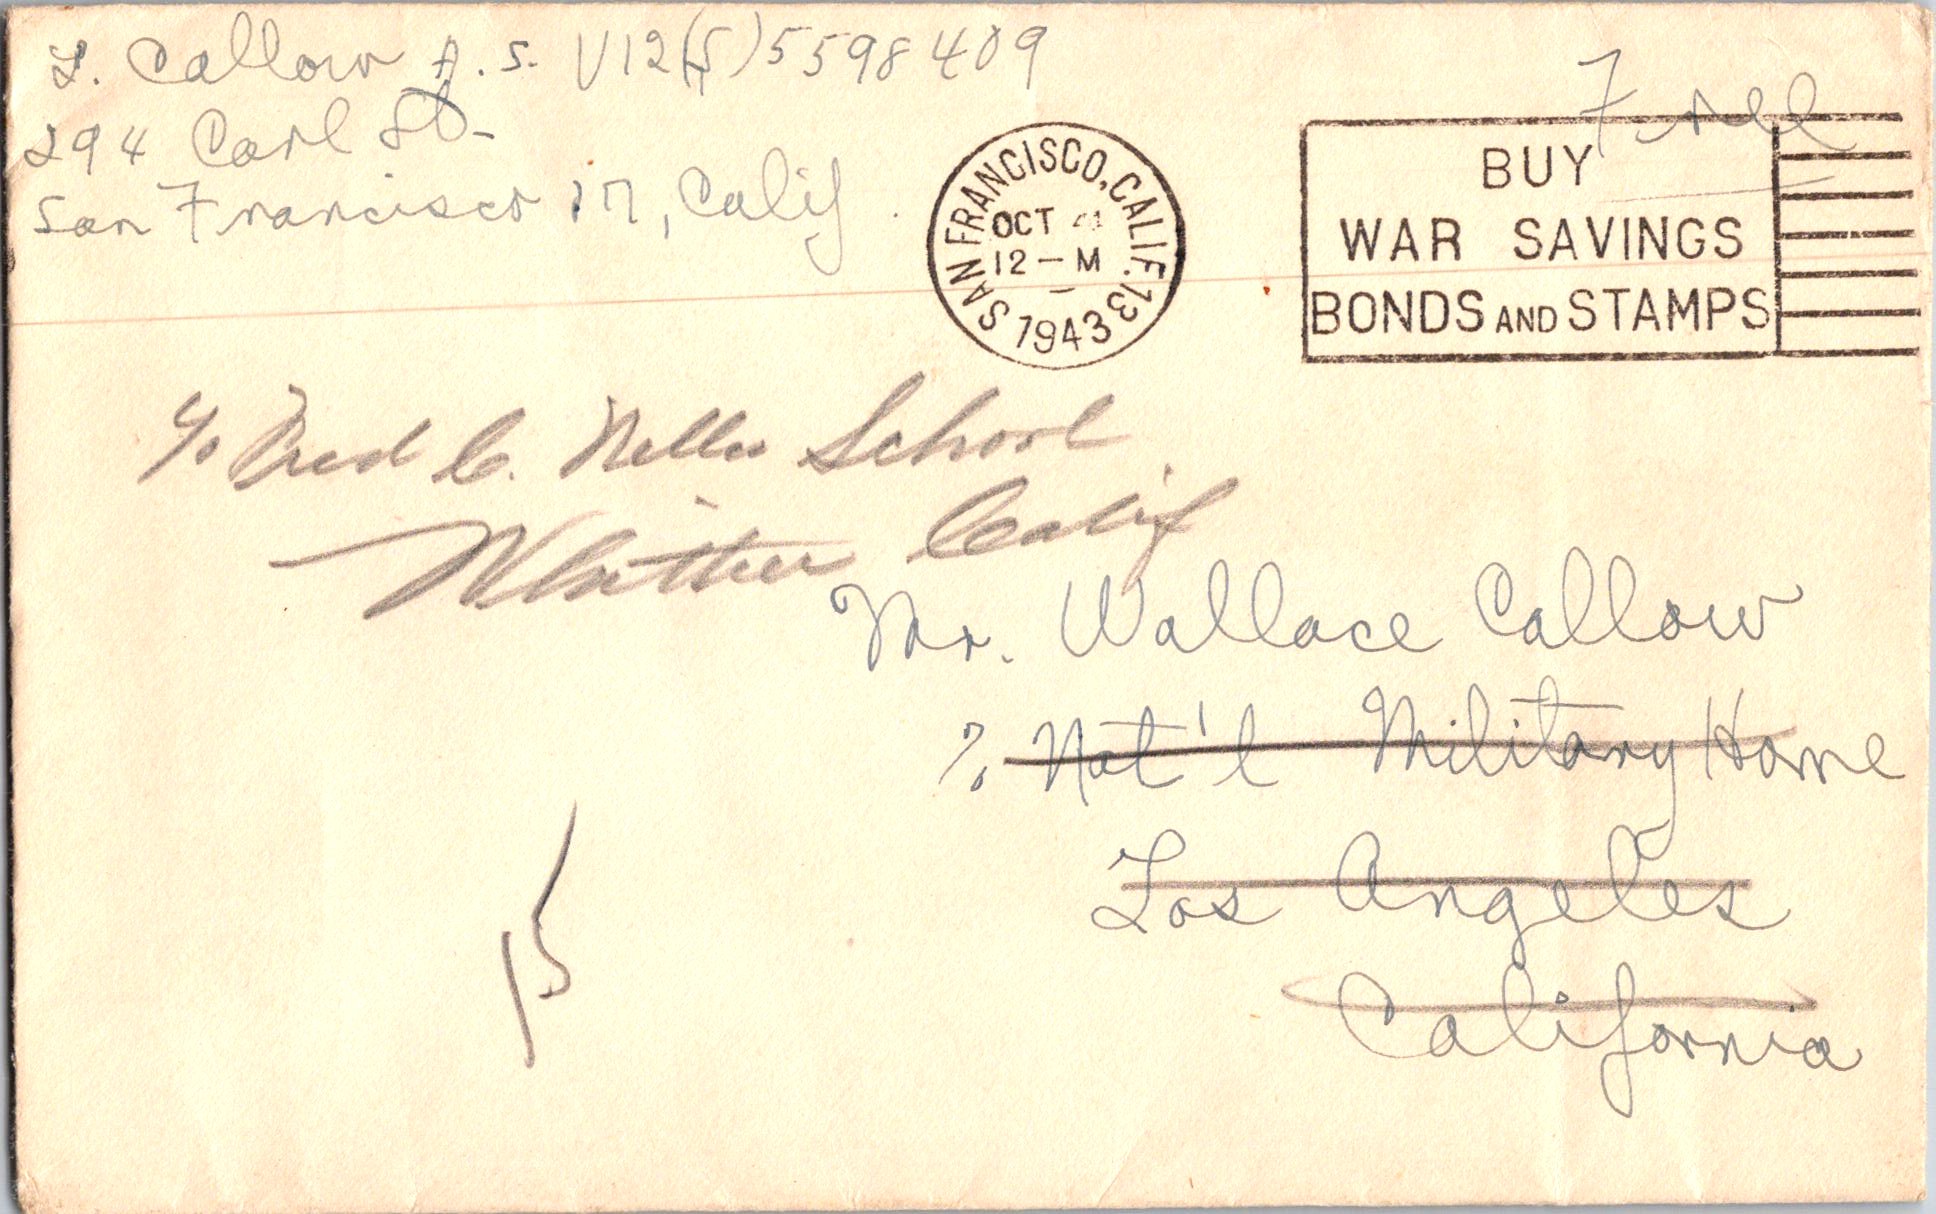 L. Callow A.S. V12(S)5598409
294 Carl St.
San Francisco 17, Calif.
Free
SAN FRANCISCO, CALIF. 13
OCT
12 – M
1943
BUY
WAR SAVINGS
BONDS AND STAMPS
℅ Fred C. Nelles School
Whittier Calif
Mr. Wallace Callow
℅ Nat'l Military Home
Los Angeles
California
15